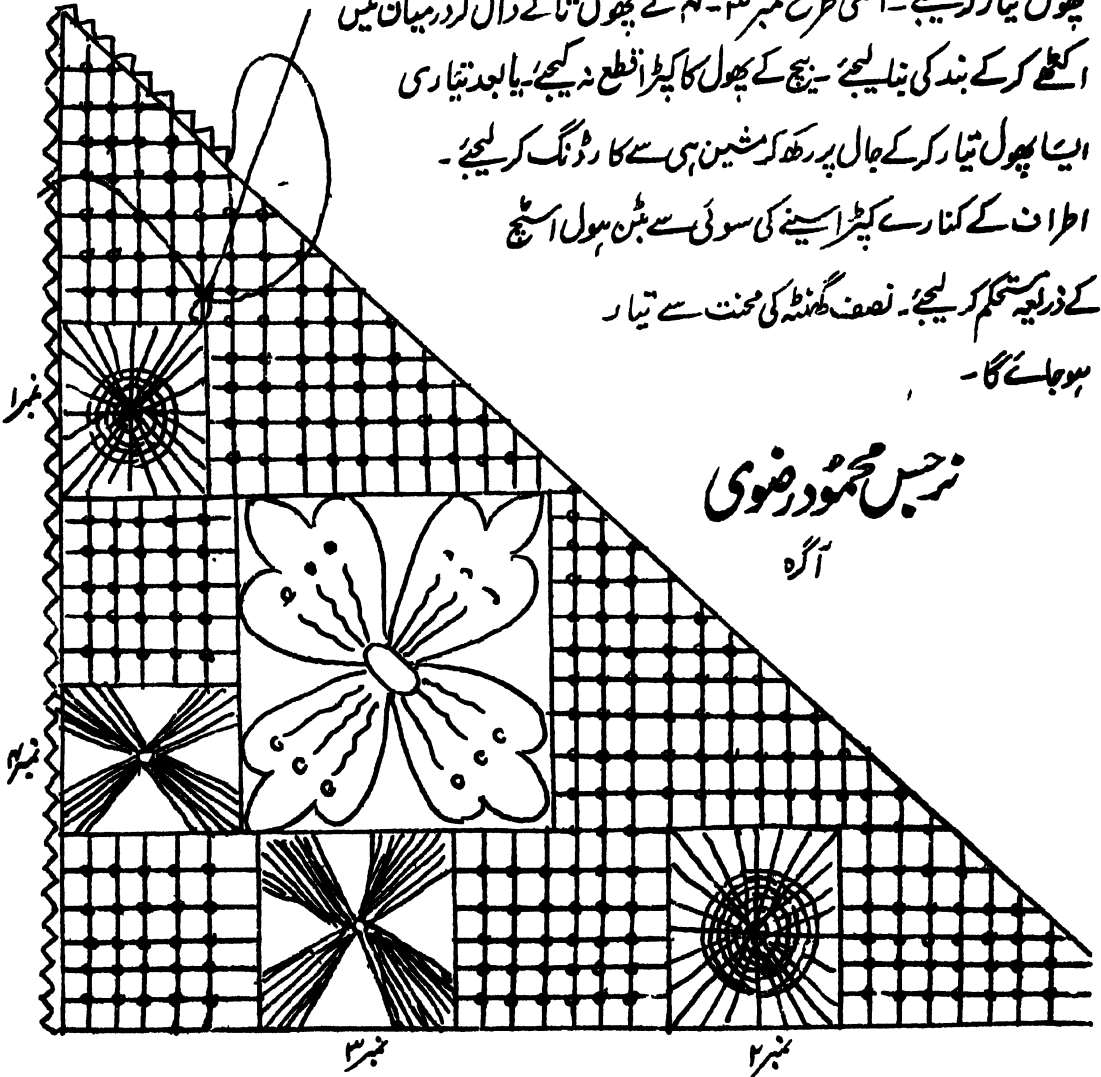 پھول تیار کر لیجئے۔ اسی طرح نمبر ۳۔ ۴ کے پھول تانے ڈال کر درمیان میں
اکٹھے کرکے بند کی بنا لیجئے۔ بیچ کے پھول کا کپڑا قطع نہ کیجئے۔ یا بعد تیاری
ایسا پھول تیار کرکے جال پر رکھ کر مشین ہی سے کارڈنگ کر لیجئے۔
اطراف کے کنارے کپڑا سینے کی سوئی سے بٹن ہول اسٹیچ
کے ذریعہ مستحکم کر لیجئے۔ نصف گھنٹہ کی محنت سے تیار
ہو جائے گا۔
نرجس محمود رضوی
آگرہ
نمبر ۱
نمبر ۴
نمبر ۳
نمبر ۲